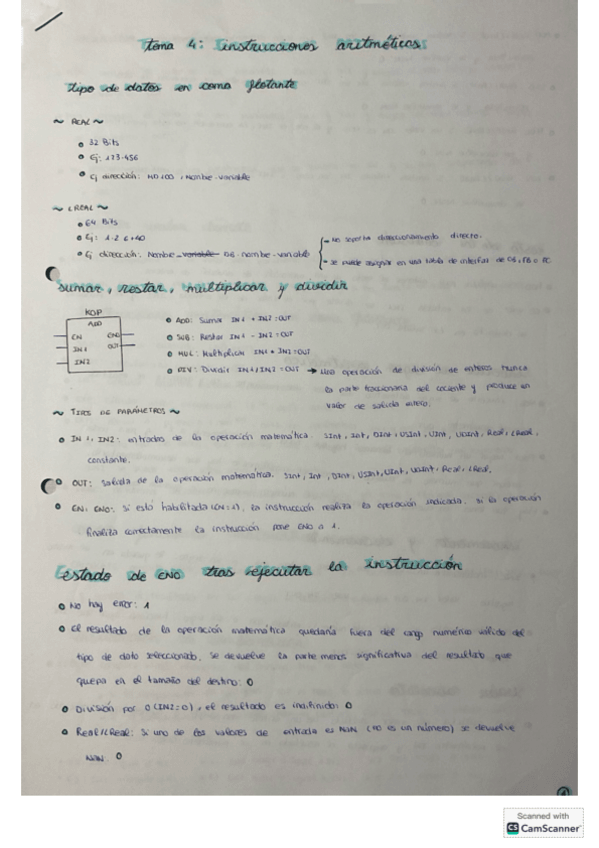 tema 4: instrucciones aritméticas:
tipo de datos en coma flotante
~ REAL ~
32 Bits
Ej: 123.456
Ej dirección: MD100, Nombre_variable
~ LREAL ~
64 Bits
Ej: 1.2 E+40
Ej dirección: Nombre_variable DB.nombre_variable
- No soporta direccionamiento directo.
- se puede asignar en una tabla de interfaz de OB, FB o FC
sumar, restar, multiplicar y dividir
KOP
ADD
EN ENO
IN1 OUT
IN2
ADD: Sumar IN1 + IN2 = OUT
SUB: Restar IN1 - IN2 = OUT
MUL: Multiplicar IN1 * IN2 = OUT
DIV: Dividir IN1 / IN2 = OUT → Una operación de división de enteros trunca
la parte fraccionaria del cociente y produce un
valor de salida entero.
~ TIPOS DE PARÁMETROS ~
IN1, IN2: entradas de la operación matemática. SInt, Int, DInt, USInt, UInt, UDInt, Real, LReal,
constante.
OUT: Salida de la operación matemática. SInt, Int, DInt, USInt, UInt, UDInt, Real, LReal,
EN, ENO: Si está habilitada (EN=1), la instrucción realiza la operación indicada. si la operación
finaliza correctamente la instrucción pone ENO a 1.
Estado de ENO tras ejecutar la instrucción
No hay error: 1
El resultado de la operación matemática quedaría fuera del rango numérico válido del
tipo de dato seleccionado, se devuelve la parte menos significativa del resultado que
quepa en el tamaño del destino: 0
División por 0 (IN2=0), el resultado es indefinido: 0
Real/LReal: Si uno de los valores de entrada es NaN (no es un número) se devuelve
NaN. 0
Scanned with
CS CamScanner